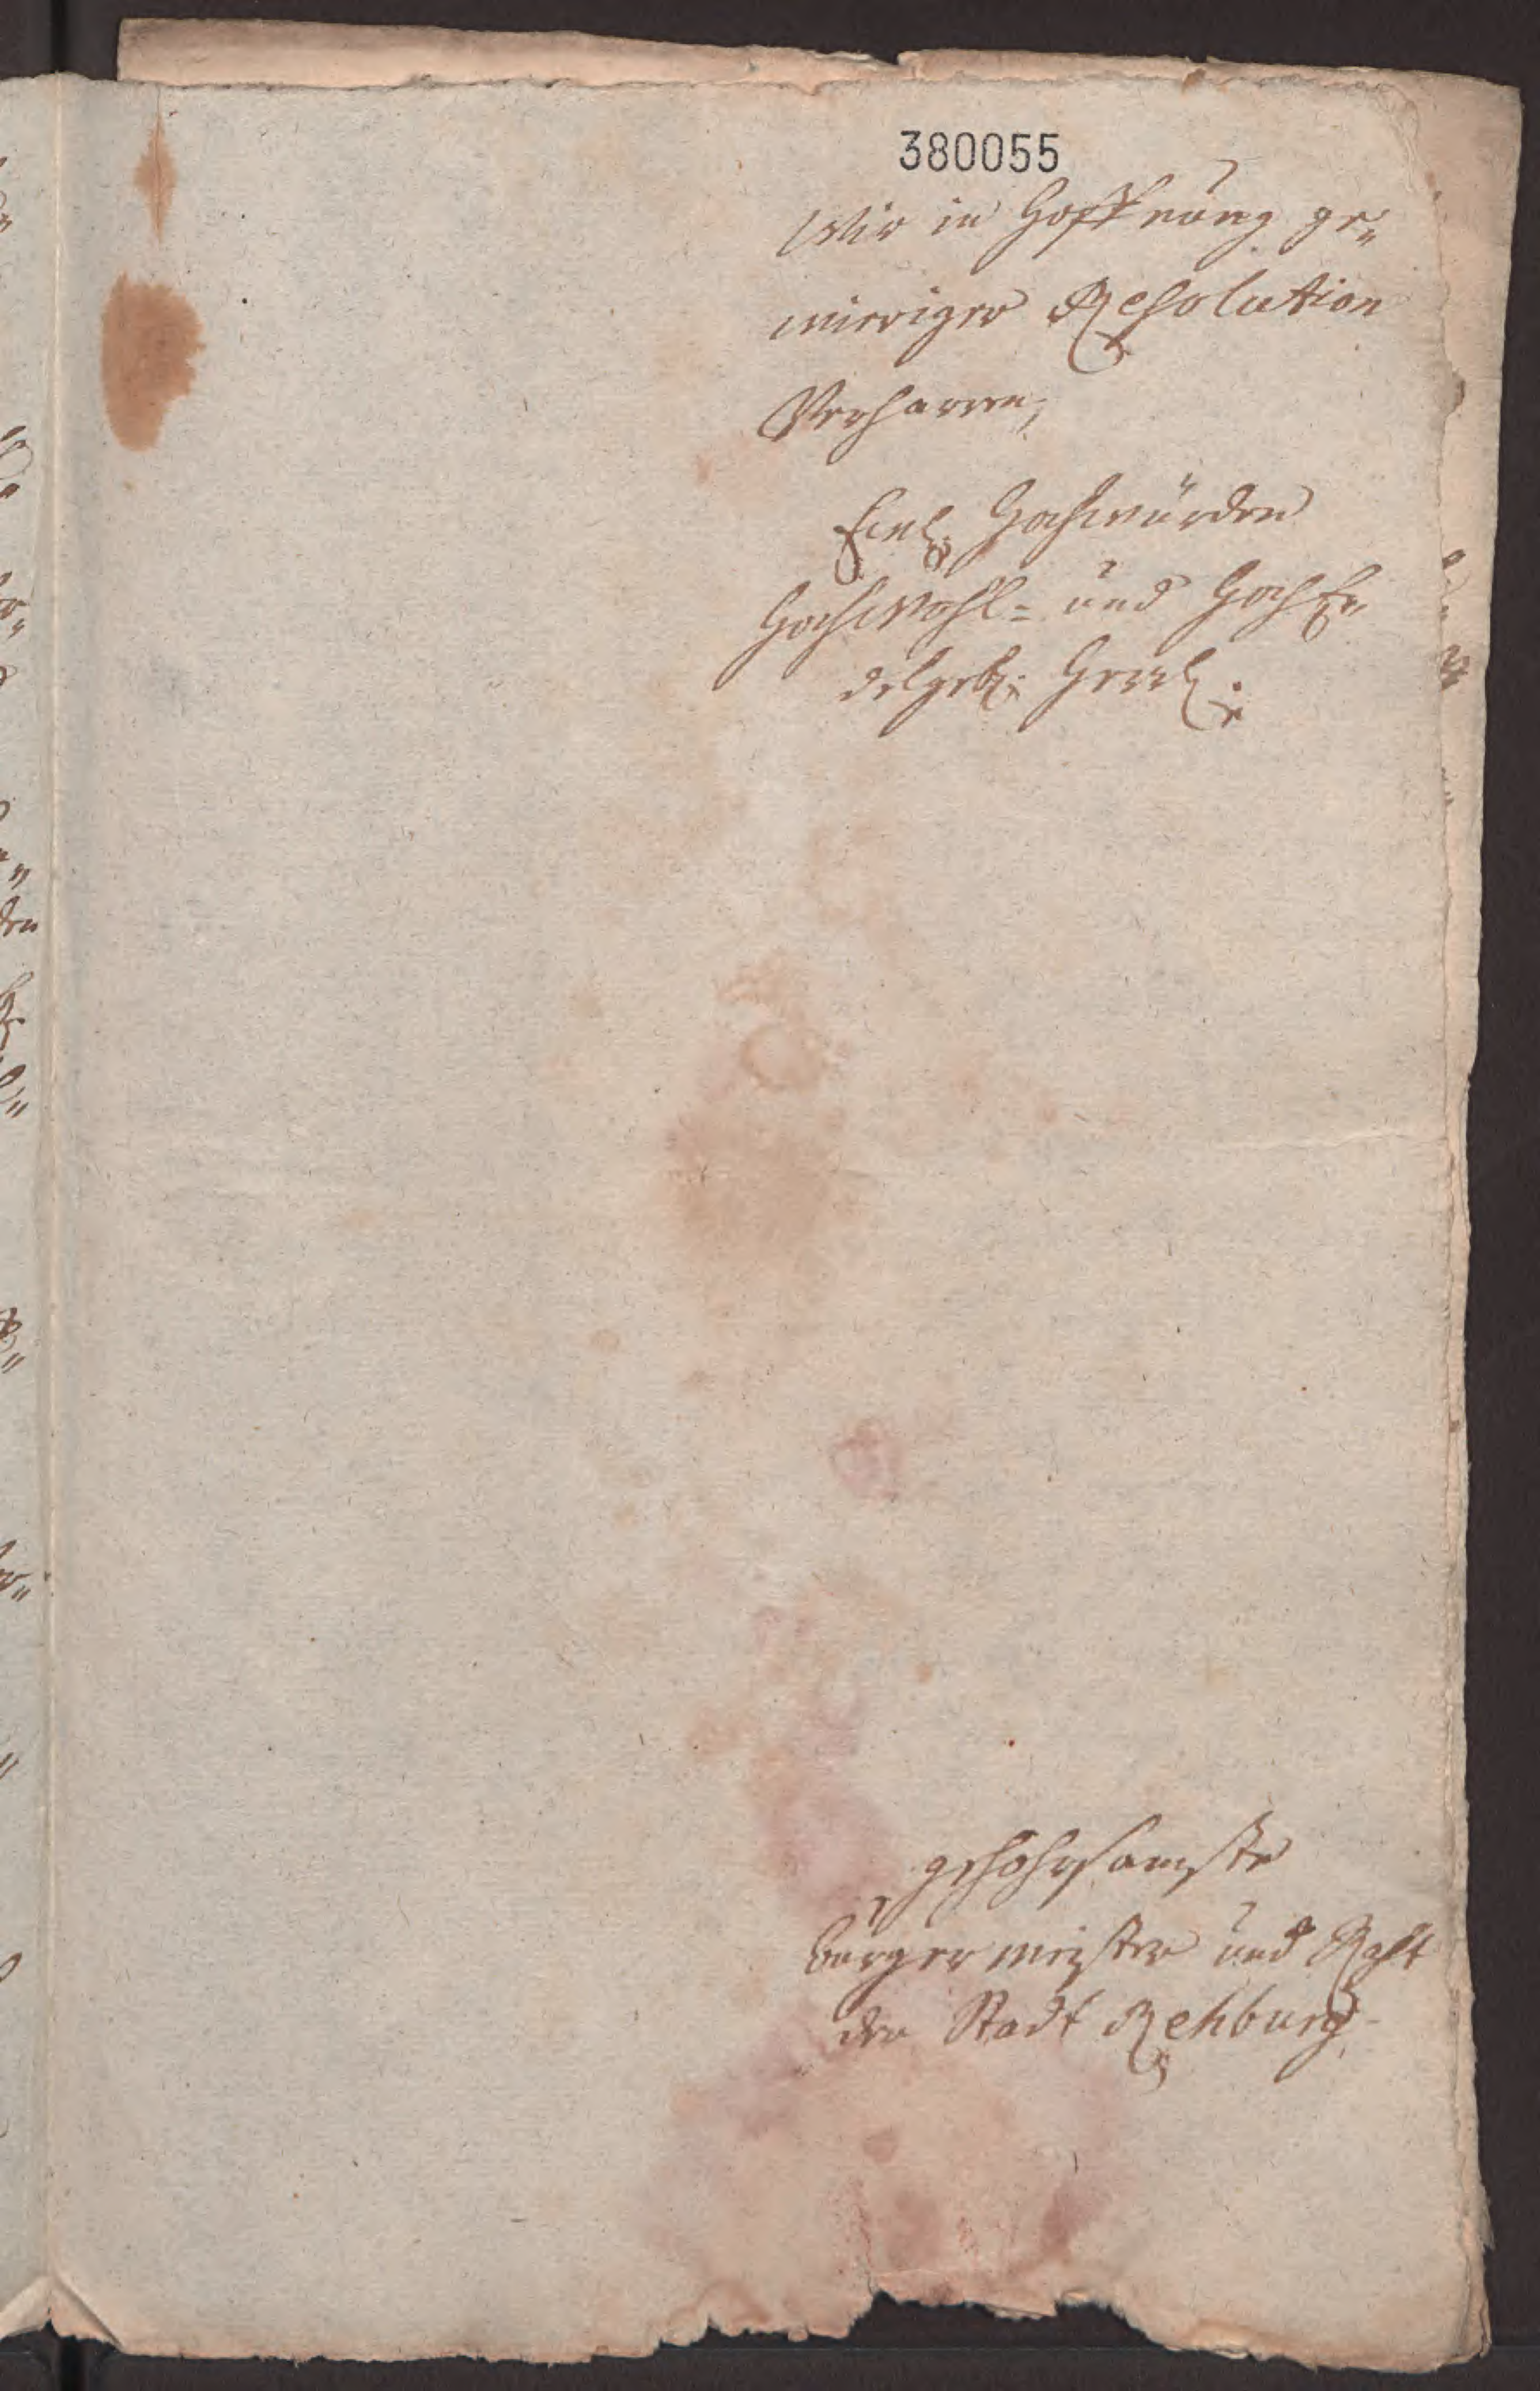 380055
Wir in Hoffnung ge„
wieriger Resolution
Verharren,
Hochwürden
Hochwohl= und HochE„
delgeb.
gehohrsamste
Bürgermeister und Raht
der Stadt Rehburg